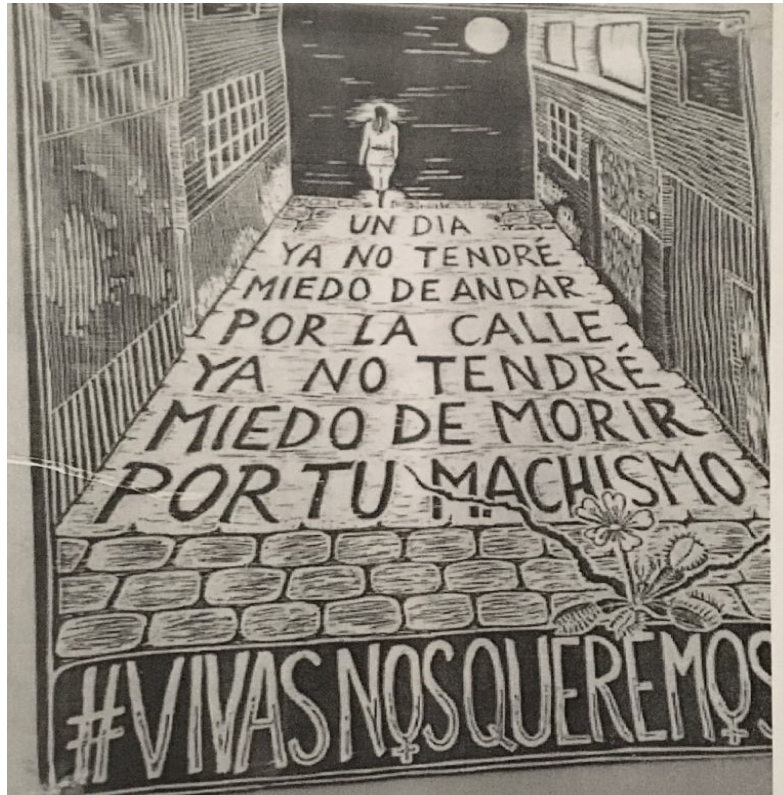 UN DIA
YA NO TENDRÉ
MIEDO DE ANDAR
POR LA CALLE
YA NO TENDRÉ
MIEDO DE MORIR
POR TU MACHISMO
#VIVAS NOS QUEREMOS